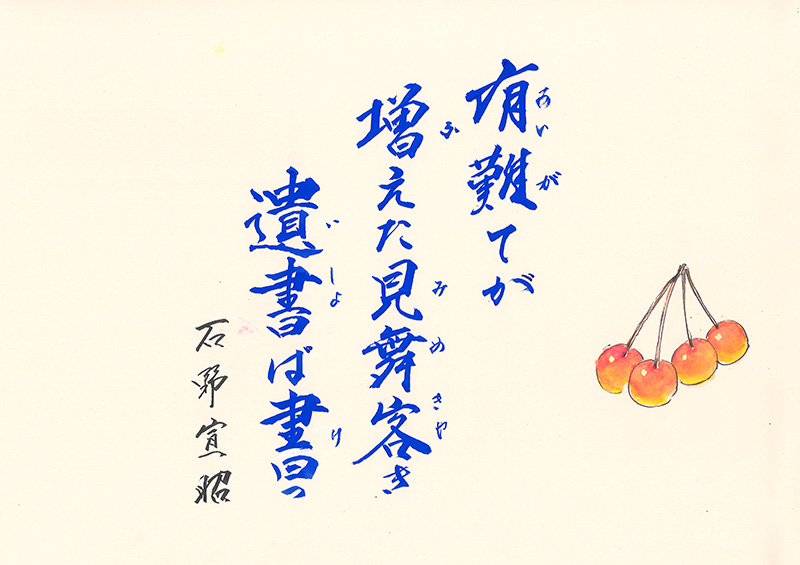 有難てが
増えた見舞客き
遺書ば書っ
石野宣昭
あいが
ふ
みめきゃ
いしょ
け